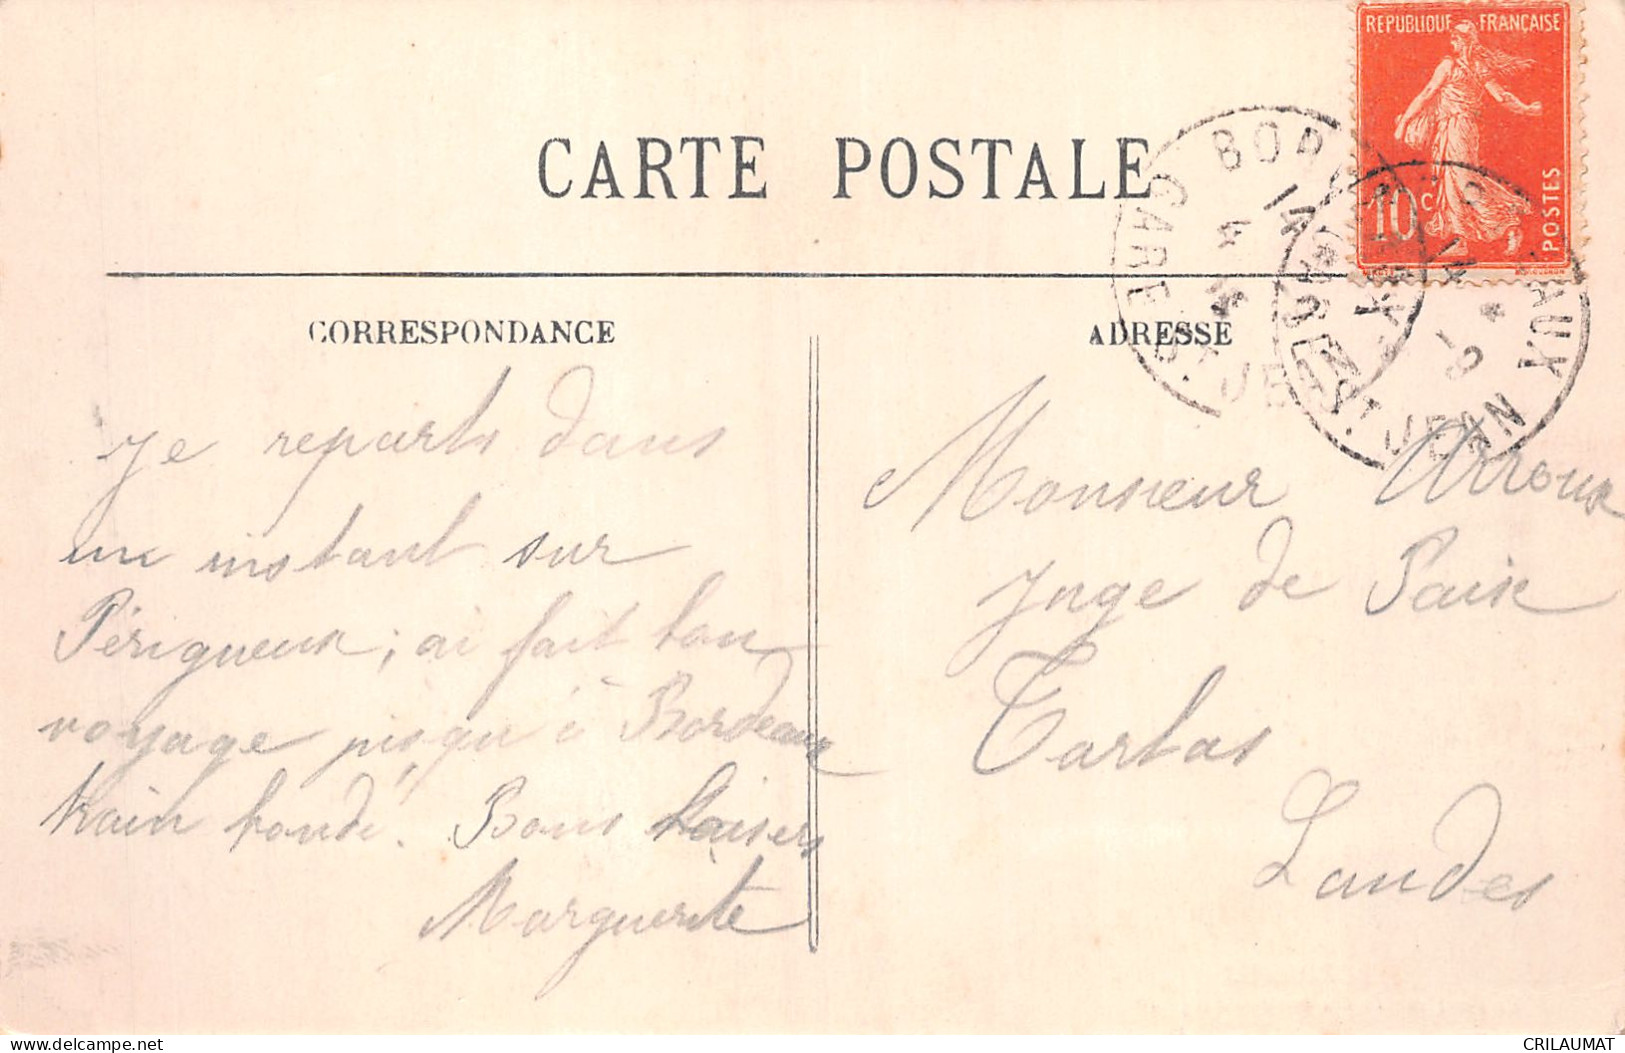 REPUBLIQUE FRANÇAISE
10c
POSTES
CARTE POSTALE
BORDEAUX
GARE ST JEAN
CORRESPONDANCE
ADRESSE
Je reparts dans
un instant sur
Périgueux; ai fait bon
voyage jusqu'à Bordeaux
train bondé. Bons baisers
Marguerite
Monsieur Arroux
Juge de Paix
Tartas
Landes
CRILAUMAT